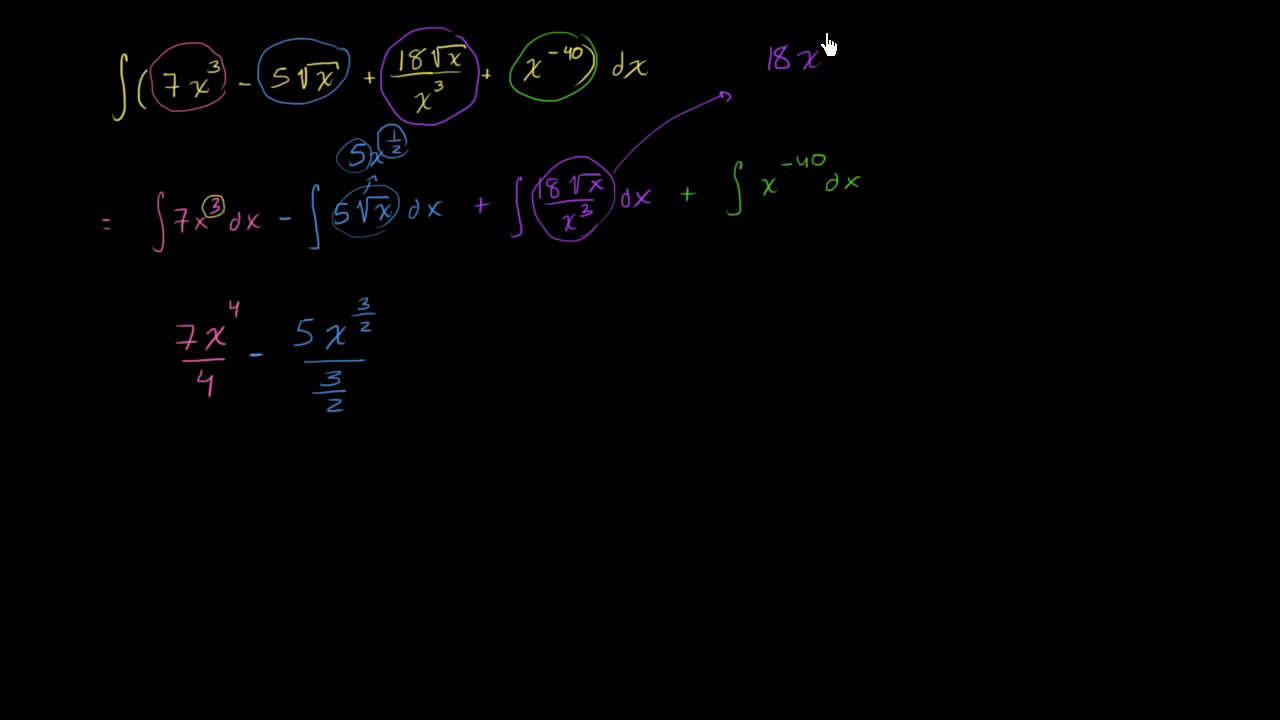 ∫(7x³ - 5√x + 18√x/x³ + x⁻⁴⁰) dx
18x
5x^(1/2)
= ∫7x³dx - ∫5√x dx + ∫18√x/x³ dx + ∫x⁻⁴⁰dx
7x⁴/4 - 5x^(3/2)/(3/2)